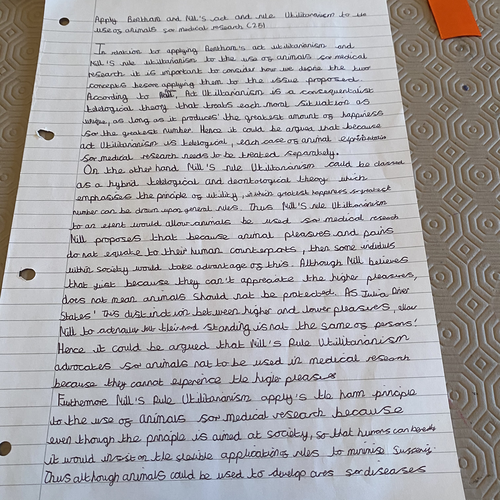 Apply Bentham and Mill's act and rule Utilitarianism to the
use of animals for medical research (25)
In relation to applying Bentham's act utilitarianism and
Mill's rule utilitarianism to the use of animals for medical
research it is important to consider how we define the two
concepts before applying them to the issue proposed.
According to Act Utilitarianism is a consequentialist
teleological theory that treats each moral situation as
unique, as long as it produces the greatest amount of happiness
for the greatest number. Hence it could be argued that because
act Utilitarianism is teleological, each case of animal
for medical research needs to be treated separately.
On the other hand Mill's rule Utilitarianism could be classed
as a hybrid teleological and deontological theory which
emphasises the principle of utility, greatest happiness greatest
number can be drawn upon general rules. Thus Mill's rule Utilitarianism
to an extent would allow animals be used for medical research
Mill proposes that because animal pleasures and pains
do not equate to their human counterparts, then some
within society would take advantage of this. Although Mill believes
that just because they can't appreciate the higher pleasures,
does not mean animals should not be protected. As Julia Driver
States 'This distinction between higher and lower pleasures, allow
Mill to standing is not the same of persons'
Hence it could be argued that Mill's Rule Utilitarianism
advocates for animals not to be used in medical research
because they cannot experience the higher
Furthermore Mill's Rule Utilitarianism apply's the harm principle
to the use of animals for medical research because
even though the principle is aimed at society, so that humans can
it would insist on the application of rules to minimise
Thus although animals could be used to develop cures for diseases